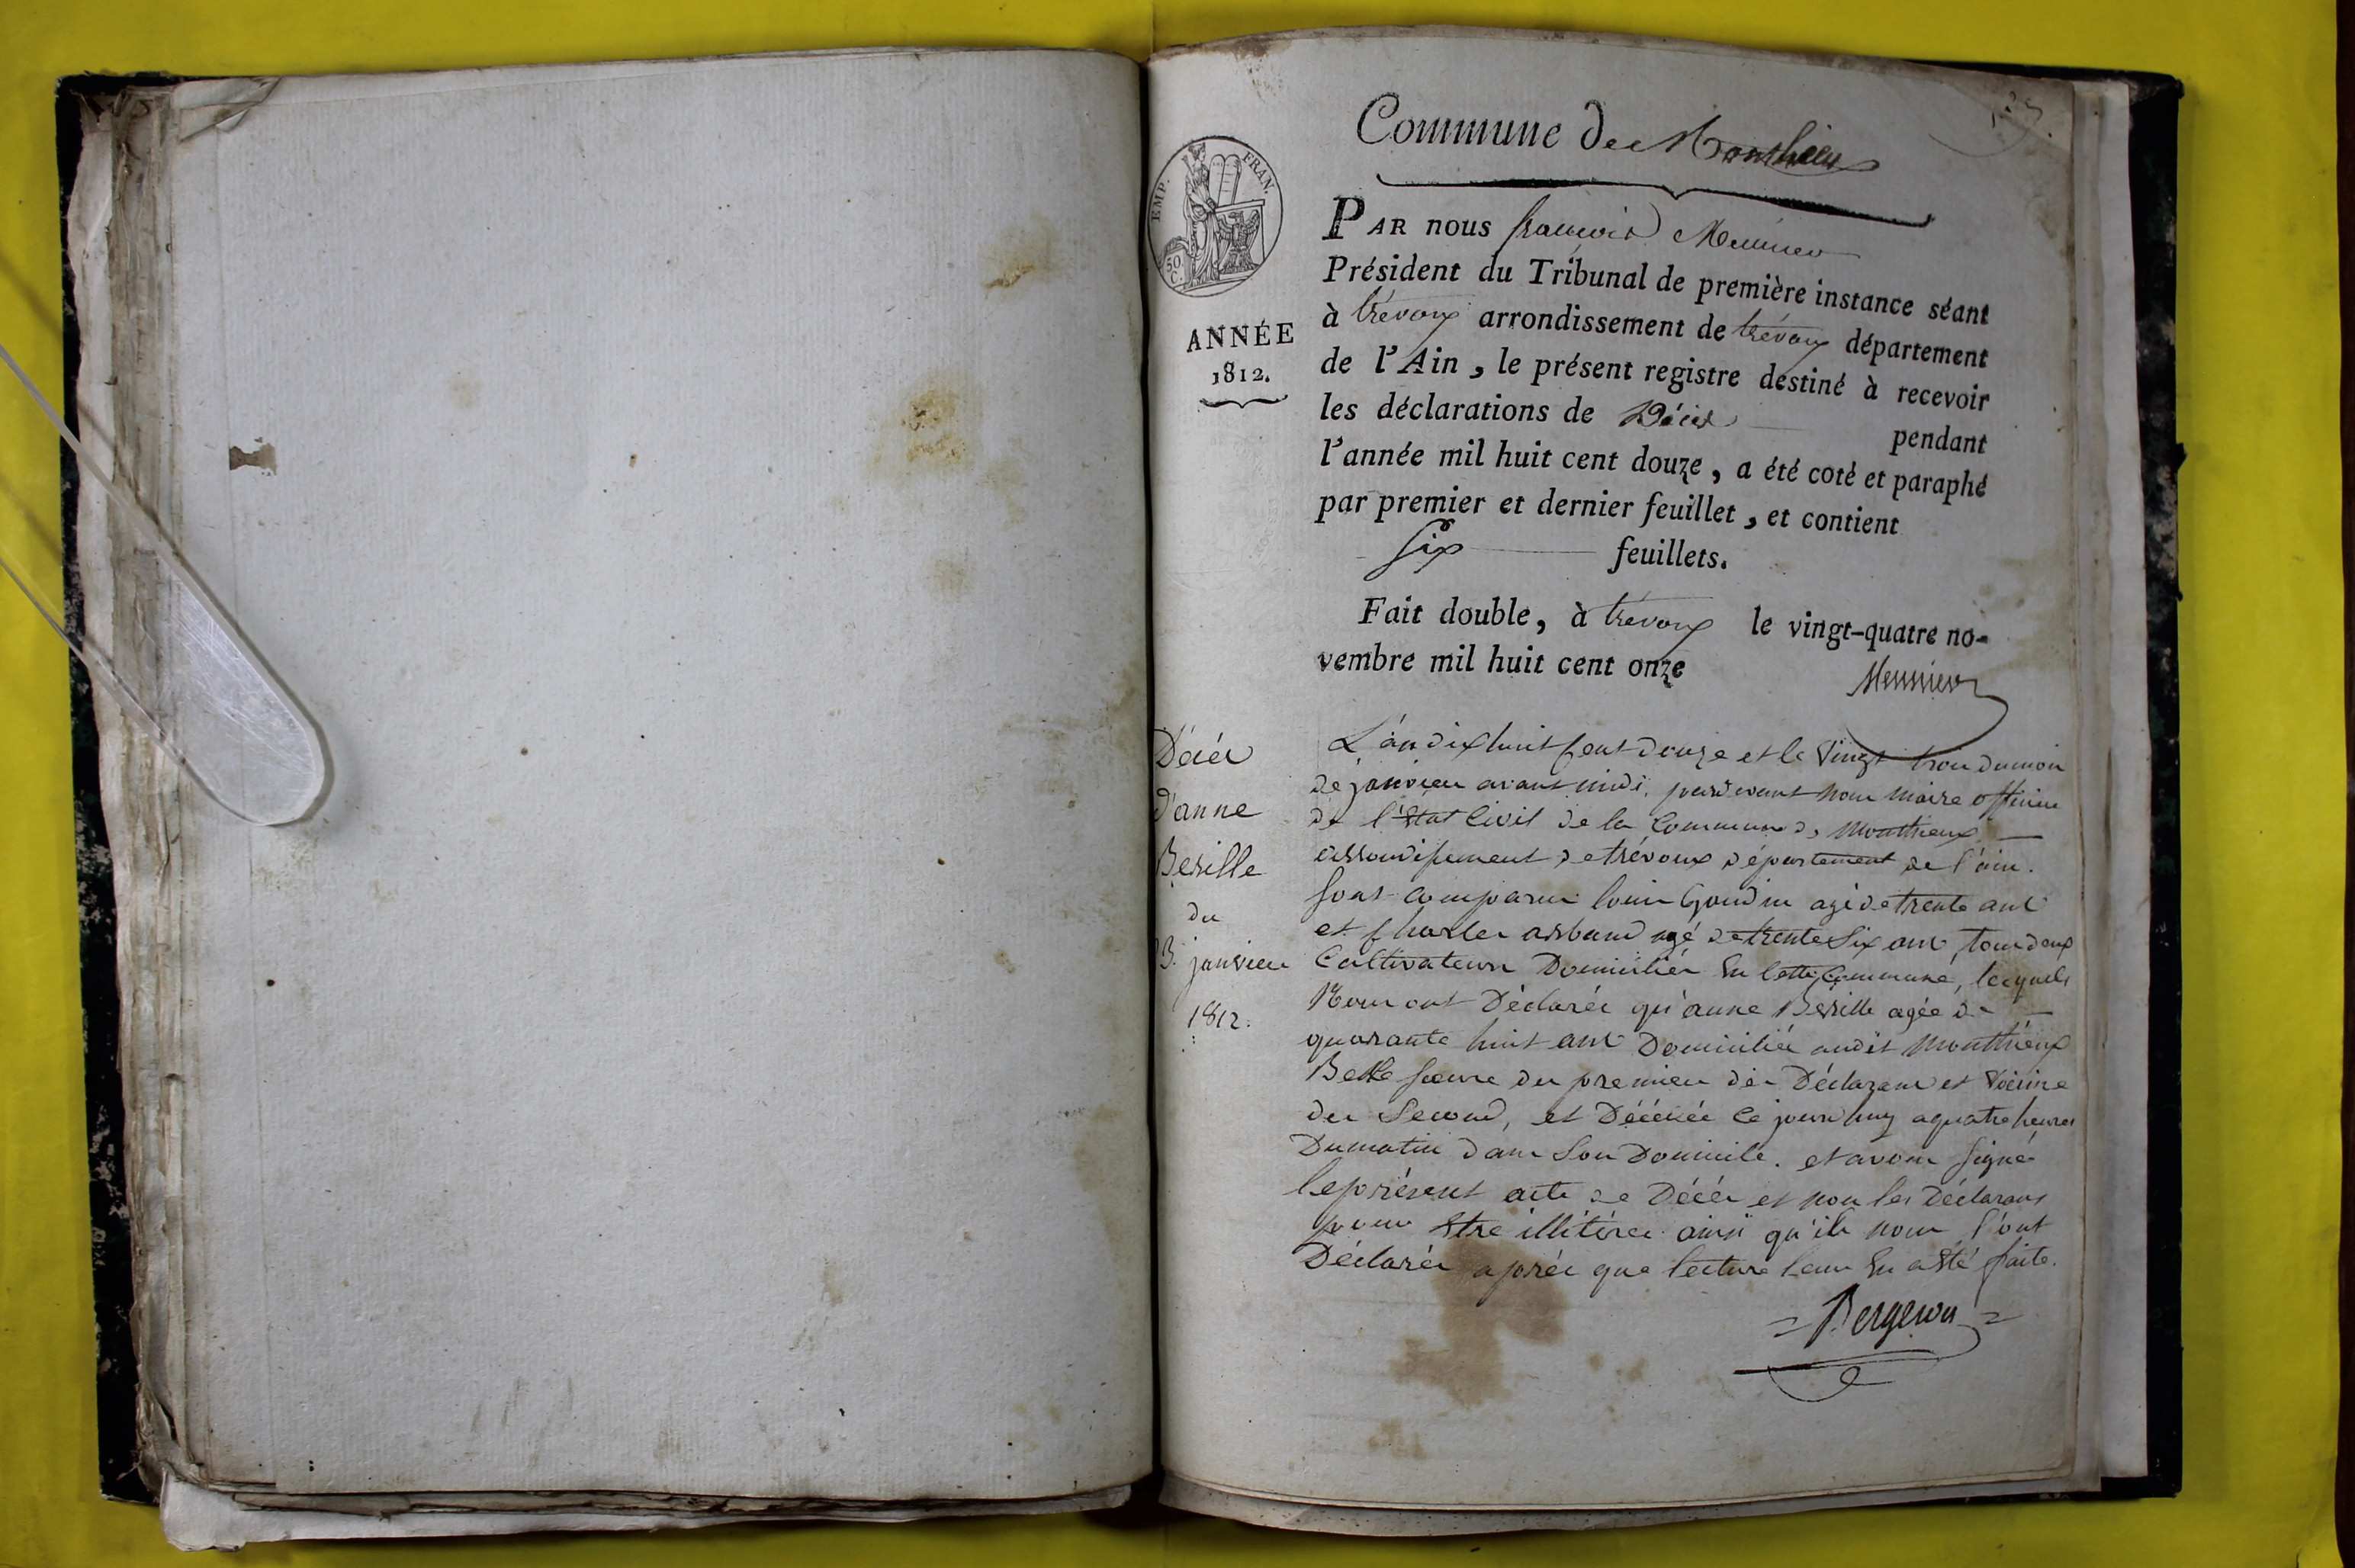 Commune de Monthieux
EMP. FRAN.
50 C.
ANNÉE
1812.
PAR nous françois Meunier
Président du Tribunal de première instance séant
à trévoux arrondissement de trévoux département
de l'Ain, le présent registre destiné à recevoir
les déclarations de Décès pendant
l'année mil huit cent douze, a été coté et paraphé
par premier et dernier feuillet, et contient
six feuillets.
Fait double, à trévoux le vingt-quatre no-
vembre mil huit cent onze
Meunier
Décès
d'anne
Besille
du
3. janvier
1812.
L'an dix huit Cent douze et le vingt trois du mois
de janvier avant midi, pardevant nous maire officier
de l'état Civil de la Commune de Monthieux
arrondissement de trévoux département de l'ain.
sont comparus louis Goudin agé de trente ans
et Charles arband agé de trente six ans, tous deux
Cultivateurs Domiciliés en cette Commune, lesquels
Nous ont Déclarés qu'anne Besille agée de
quarante huit ans Domiciliée audit Monthieux
Belle soeure du premier des Déclarans et voisine
du second, est Décédée ce jourd'huy a quatre heures
Du matin dans son Domicile. et avons signé
le présent acte de Décès et non les Déclarans
pour être illitérés ainsi qu'ils nous l'ont
Déclarés après que lecture leur en a été faite.
Bergeron